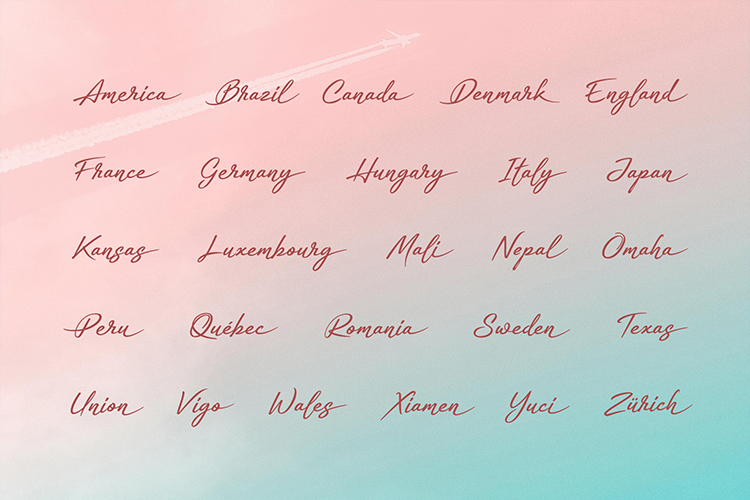 America Brazil Canada Denmark England
France Germany Hungary Italy Japan
Kansas Luxembourg Mali Nepal Omaha
Peru Québec Romania Sweden Texas
Union Vigo Wales Xiamen Yuci Zürich